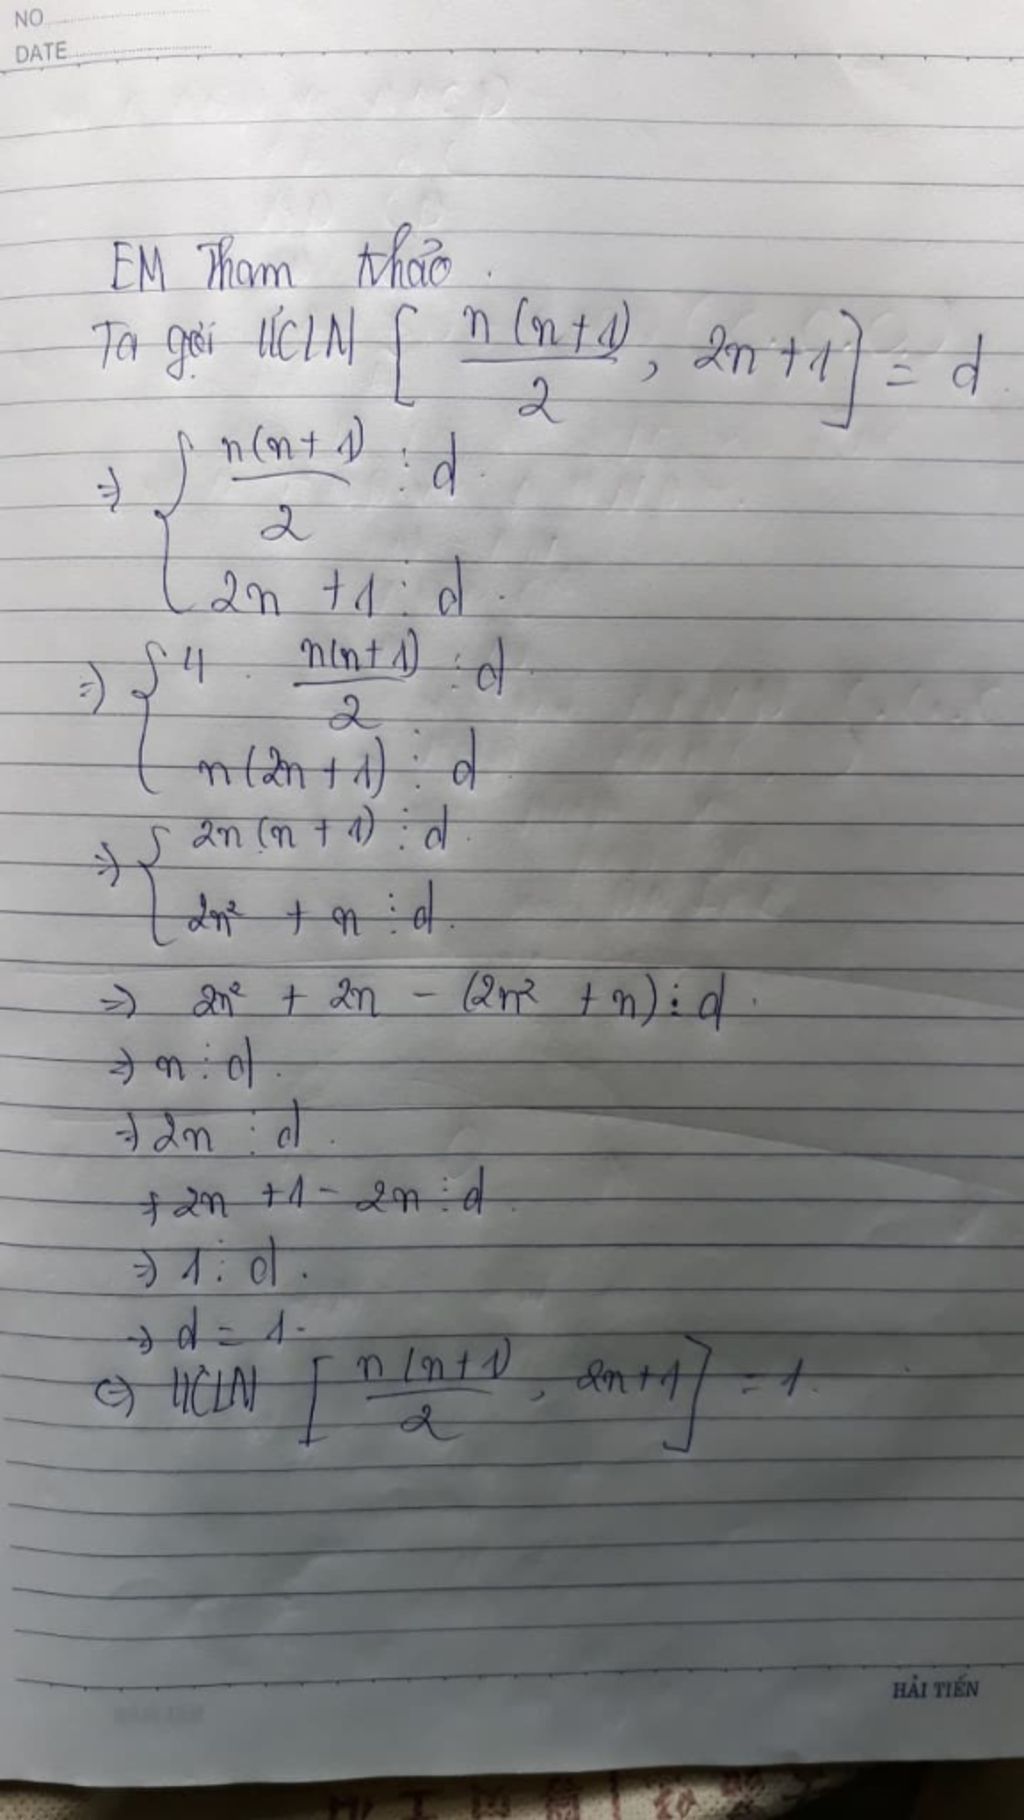 NO
DATE
EM Tham khảo.
Ta gọi ƯCLN [n(n+1)/2, 2n+1] = d
=> { n(n+1)/2 ⋮ d.
2n + 1 ⋮ d.
=> { 4 . n(n+1)/2 ⋮ d
n(2n+1) ⋮ d
=> { 2n(n+1) ⋮ d.
2n² + n ⋮ d.
=> 2n² + 2n - (2n² + n) ⋮ d.
=> n ⋮ d.
=> 2n ⋮ d.
=> 2n + 1 - 2n ⋮ d.
=> 1 ⋮ d.
=> d = 1.
=> ƯCLN [n(n+1)/2, 2n+1] = 1.
HẢI TIẾN